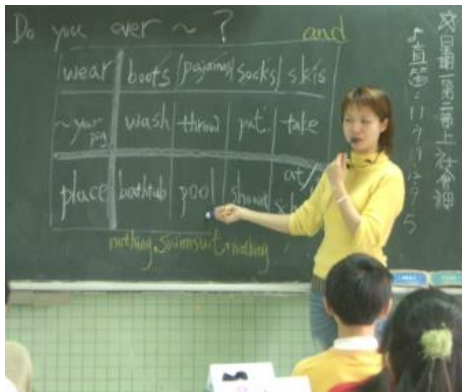 Do you ever ~ ?
and
wear boots pajamas socks skis
~ your pig wash throw put take
place bathtub pool shower at
nothing, swimsuit, nothing
星期一第二節上社會課
直笛: